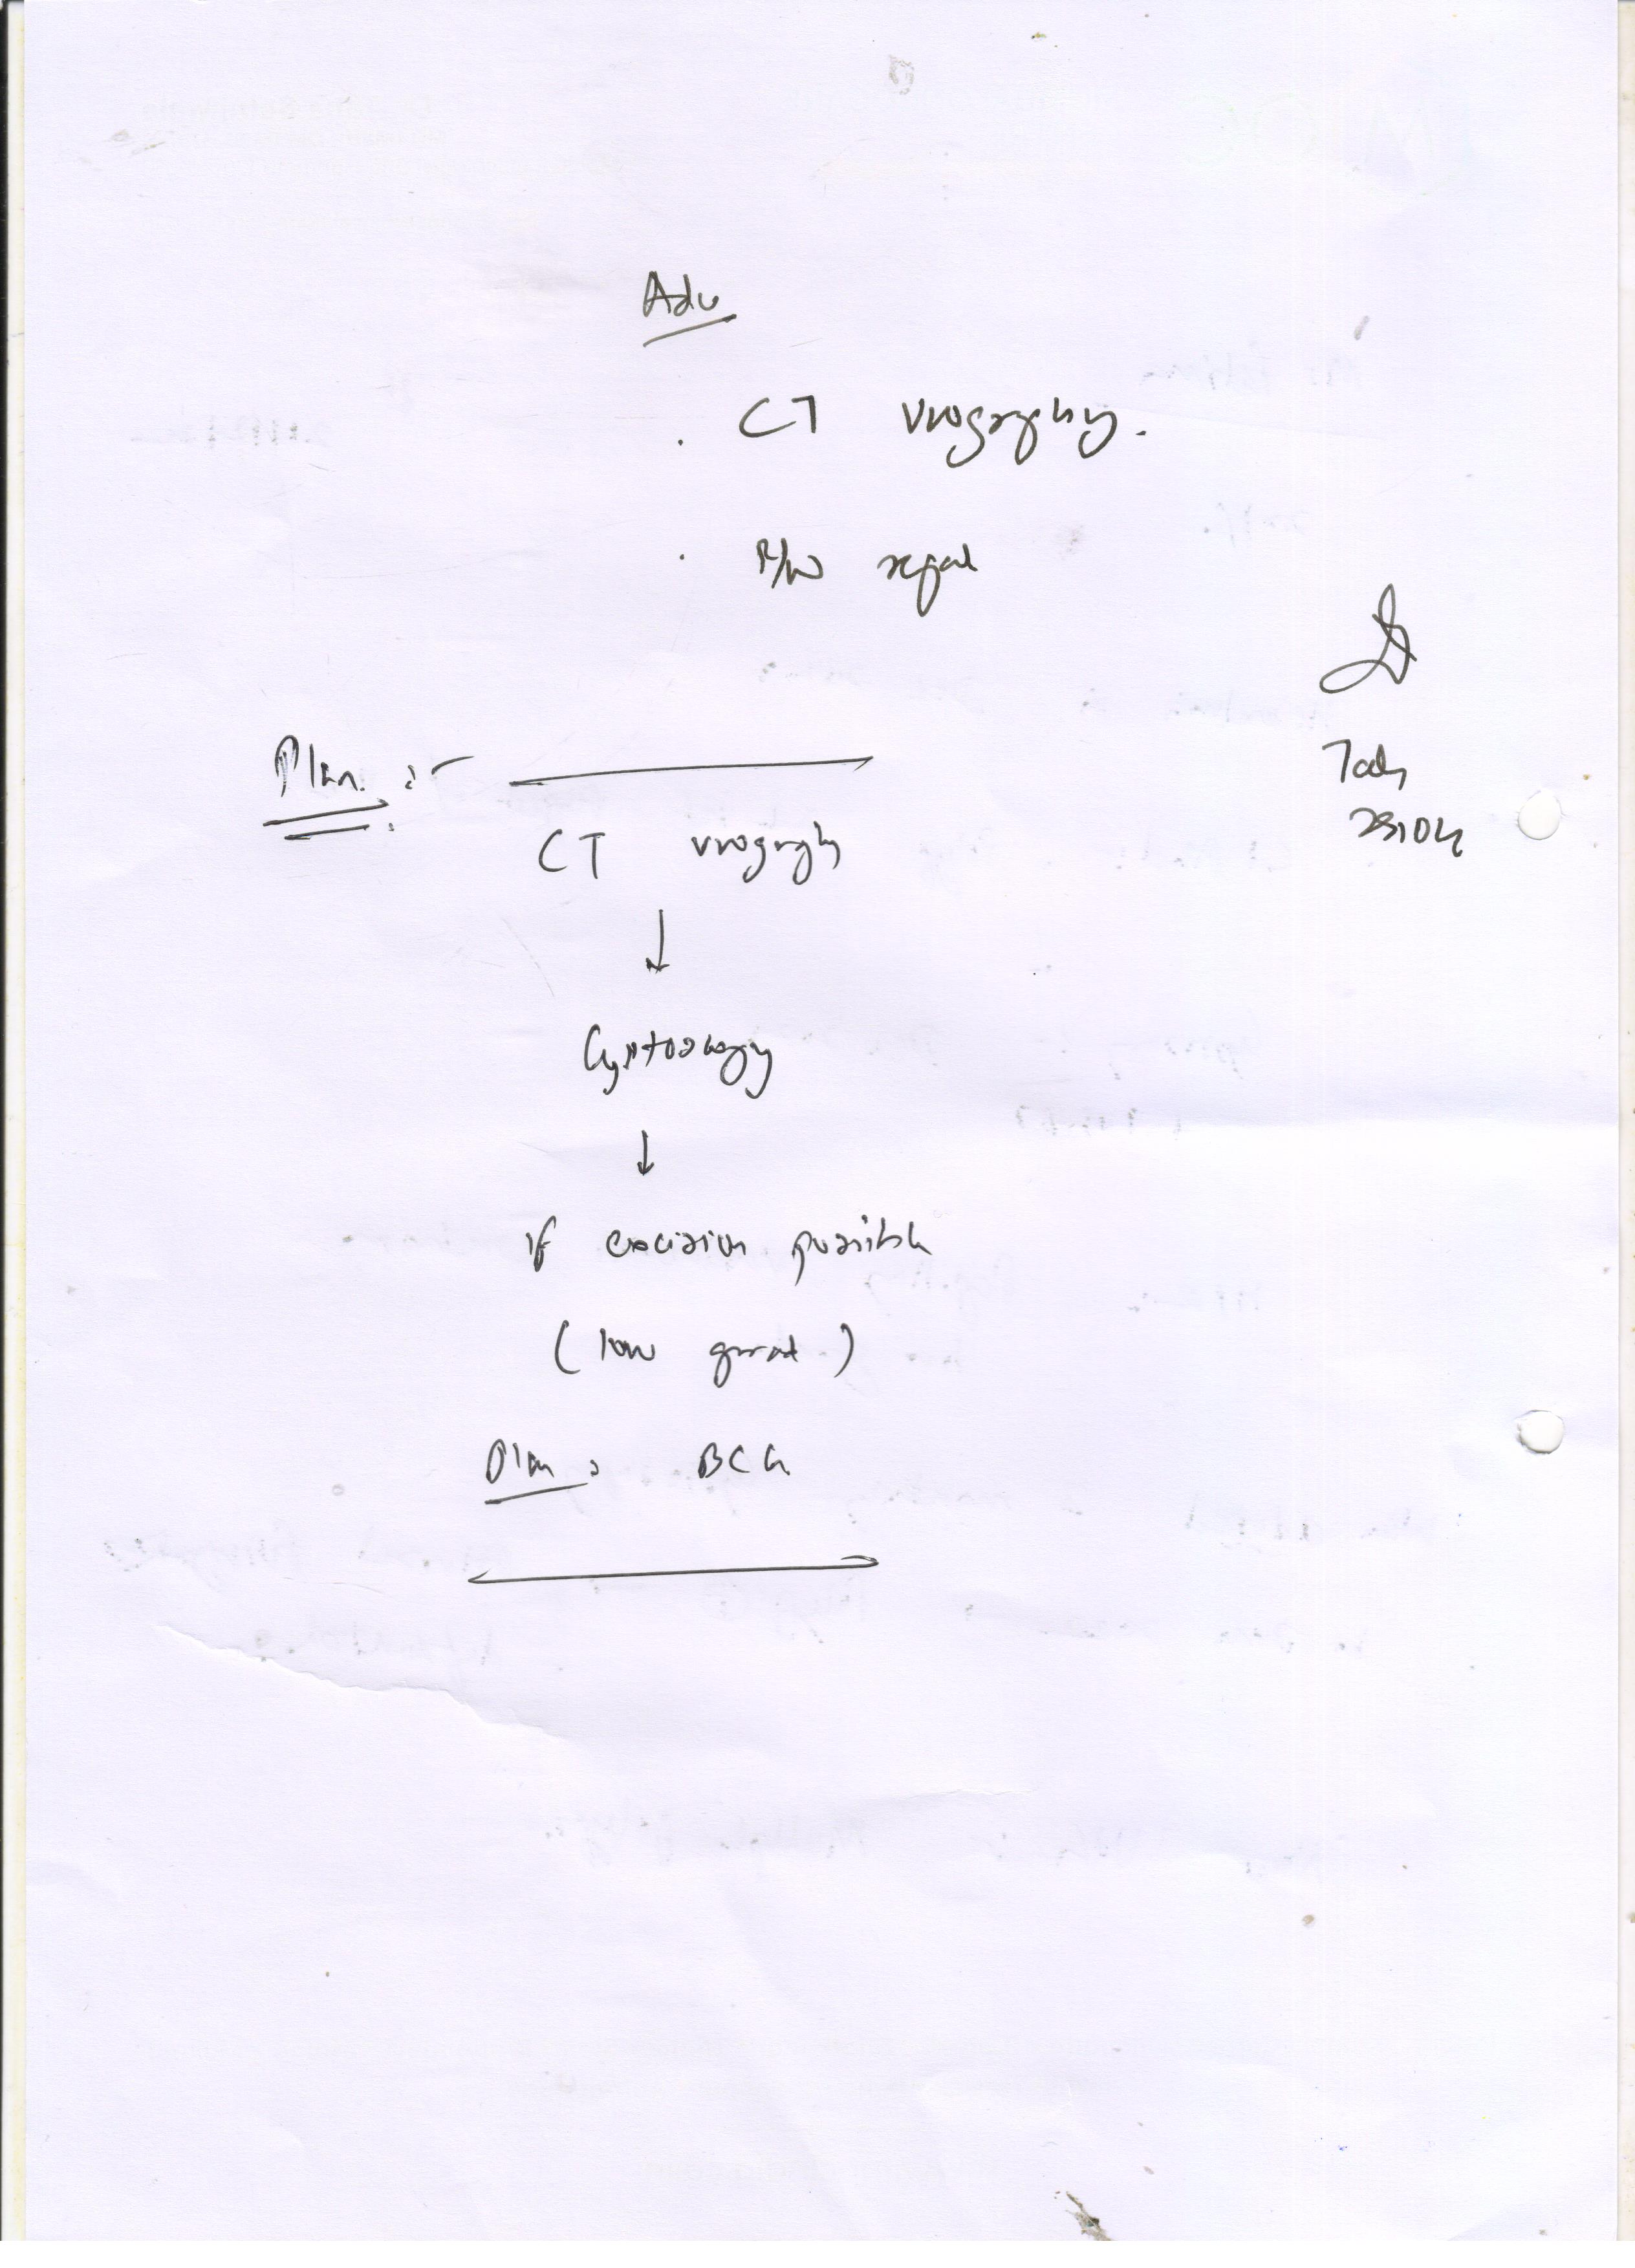 Adv
. CT urography.
. R/w
Plan :-
CT urography
↓
Cystoscopy
↓
if excision possible
(low grade)
Plan : BCG